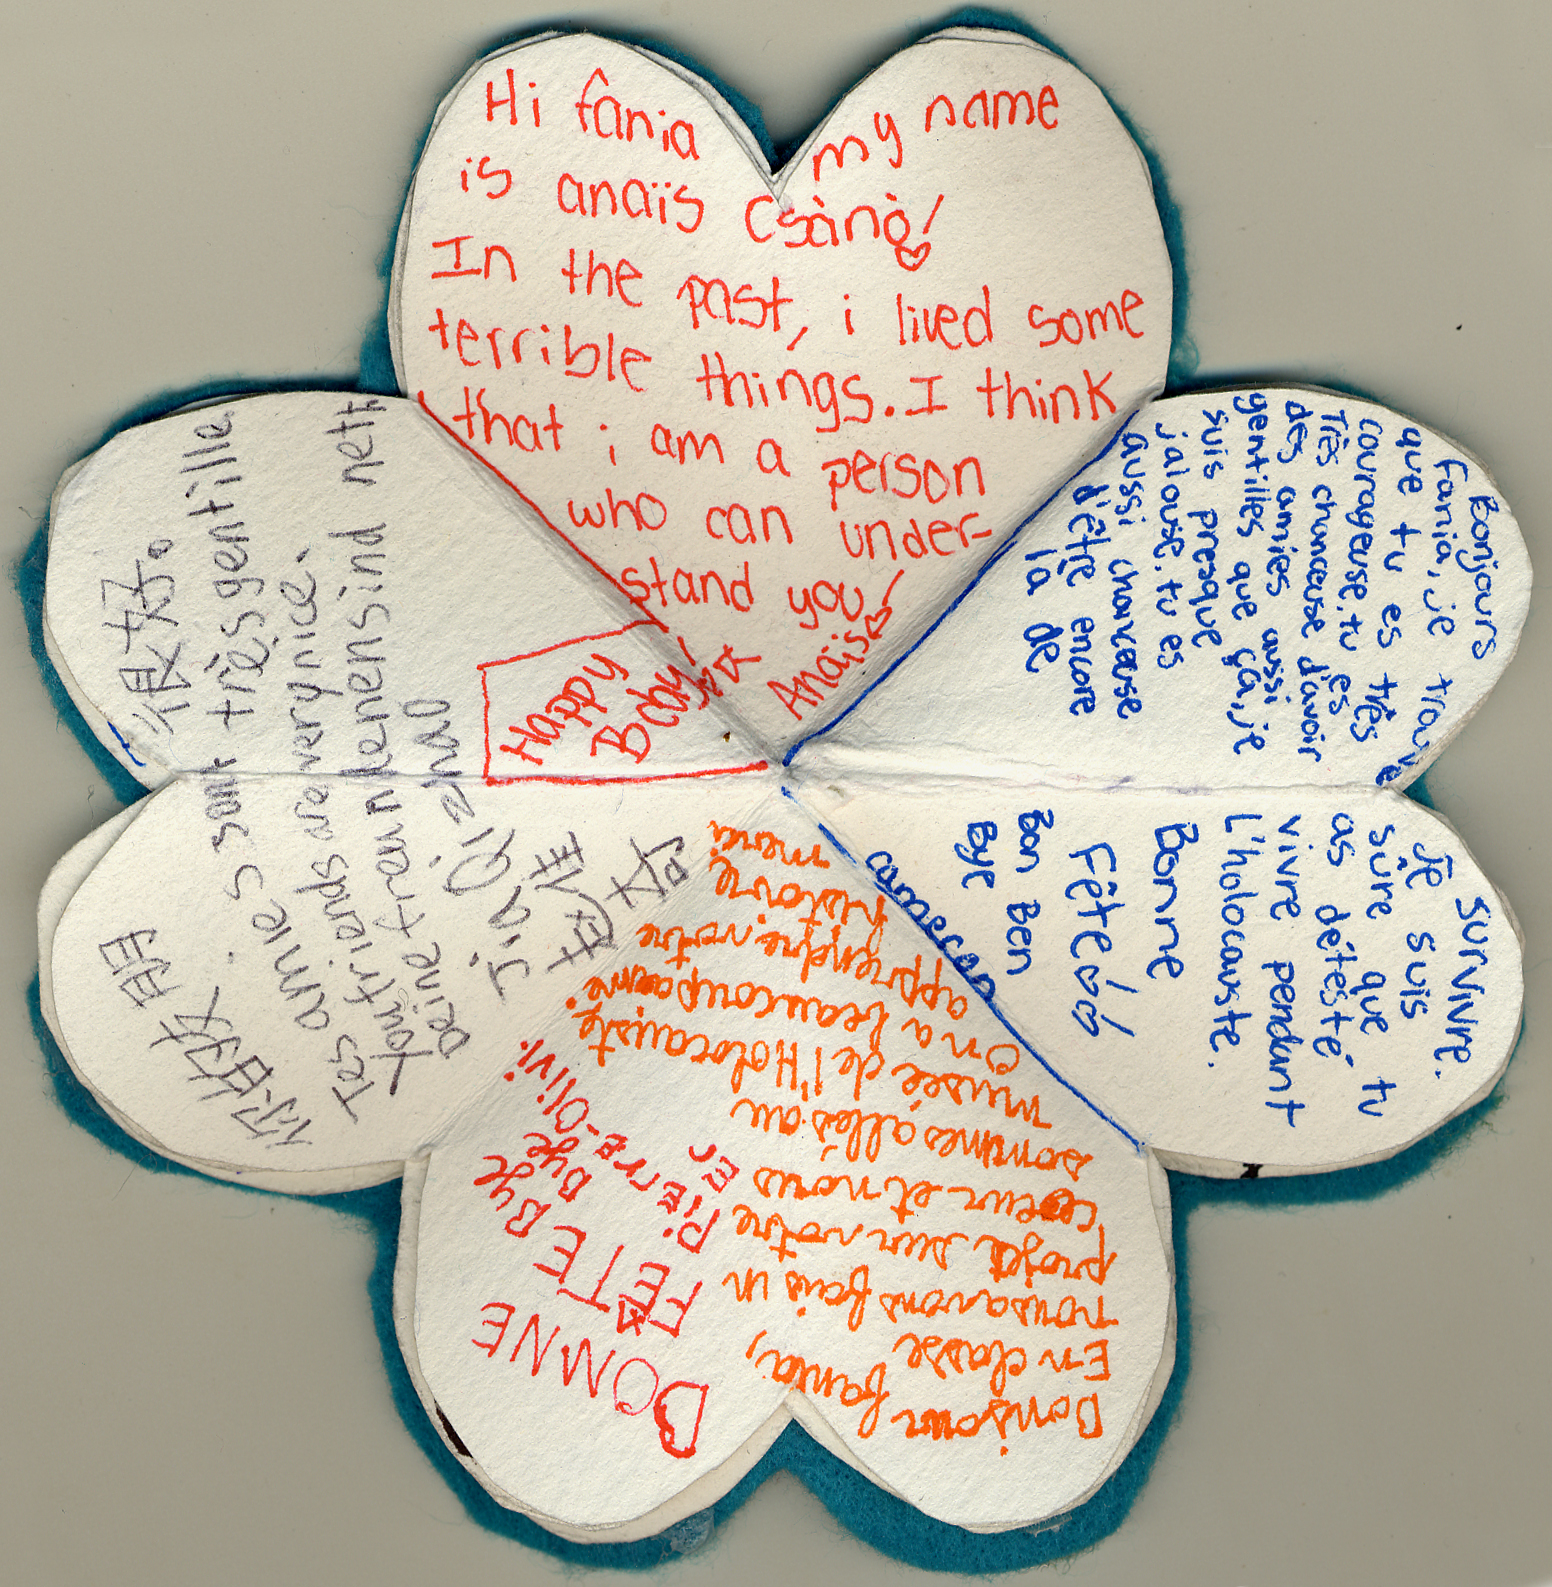 Hi fania my name
is anaïs Csànò!
In the past, i lived some
terrible things. I think
that i am a person
who can under-
stand you!
Anaïs
Happy
B-day!
Bonjours
fania, je trouve
que tu es très
courageuse. tu es
Très chanceuse d'avoir
des amies aussi
gentilles que ça, je
suis presque
jalouse. tu es
aussi chanceuse
d'être encore
la de
survivre.
Je suis
sûre que tu
as détesté
vivre pendant
l'holocauste.
Bonne
Fête!
Bon Ben
Bye
Bonjour fania,
En classe
nous avons fais un
projet sur votre
coeur et nous
sommes allés au
musée de l'Holocauste.
On a beaucoup aimé
apprendre votre
histoire
merci
BONNE
FÊTE Bye
Bye
PiErrE-Olivi
Er
你的朋 很好。
Tes amie s sont très gentille.
Your friends are very nice.
Deine fraun kenensind nett
Jia Qi zhao
赵佳
奇